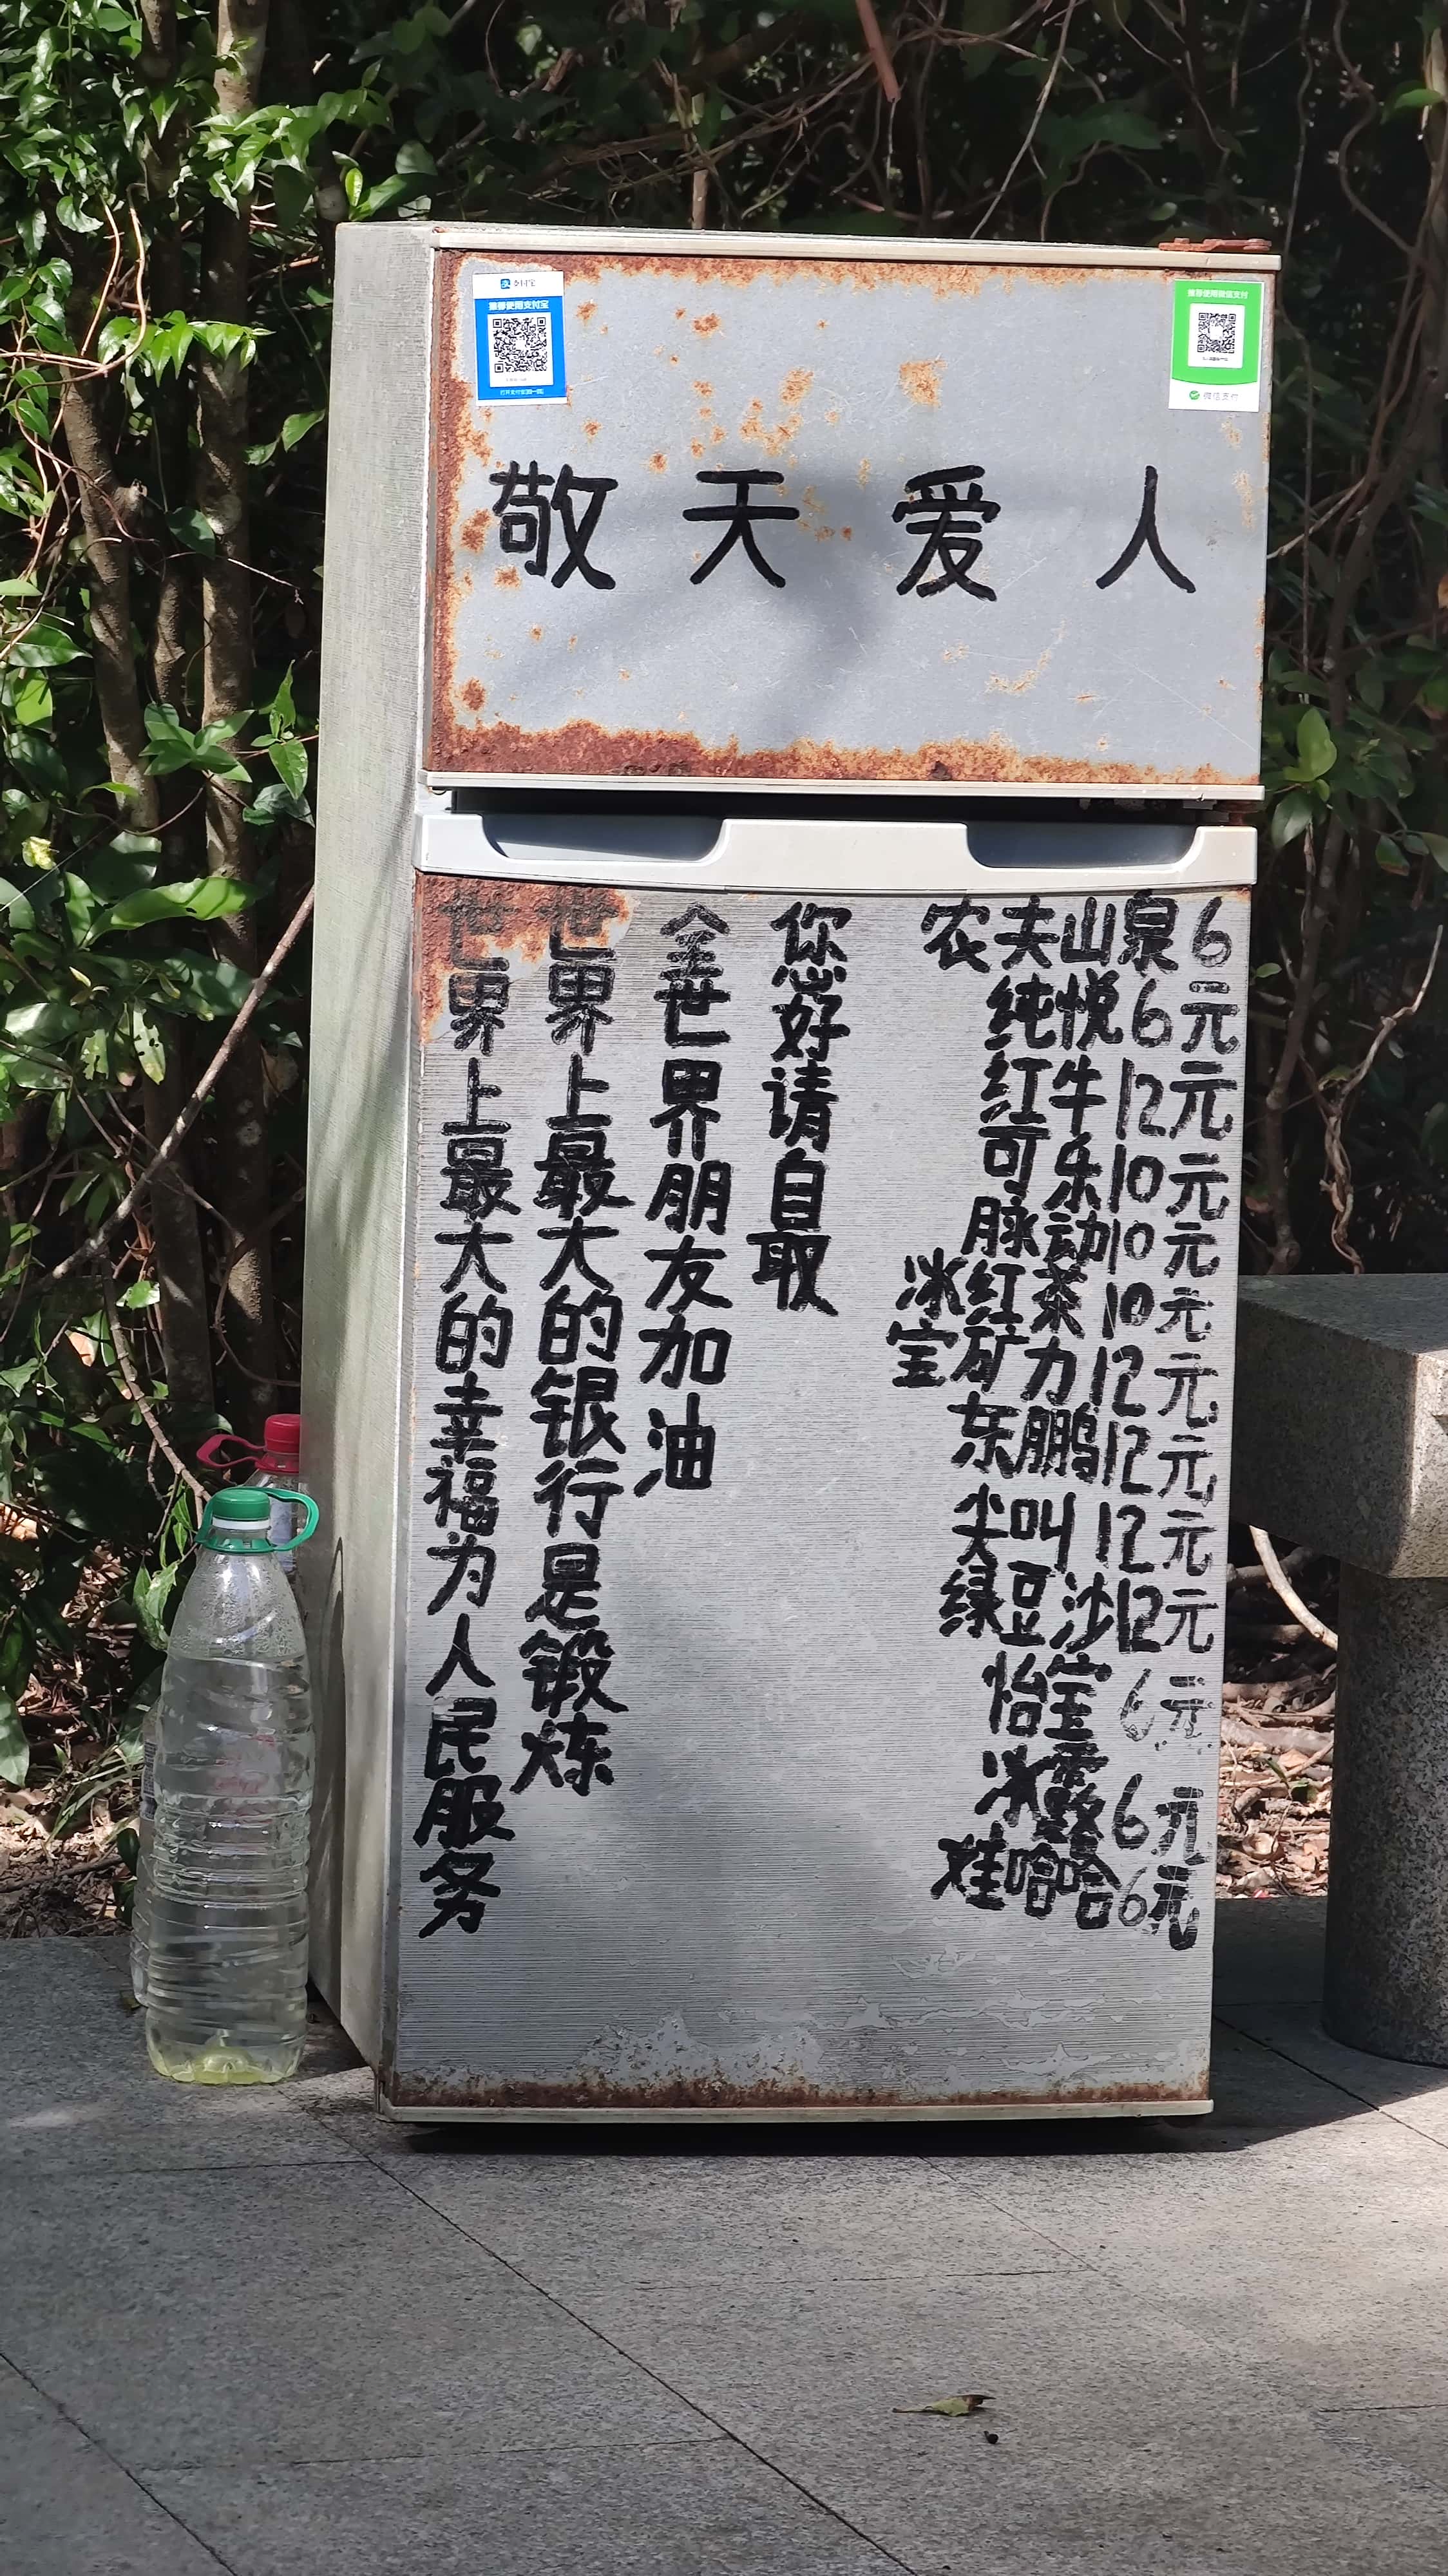 支付宝
推荐使用支付宝
推荐使用微信支付
微信支付
敬天爱人
农夫山泉6
纯悦6元
红牛12元
可乐10元
脉动10元
冰红茶10元
宝矿力12元
东鹏12元
尖叫12元
绿豆沙12元
怡宝6元
冰露6元
娃哈哈6元
你好请自取
全世界朋友加油
世界上最大的银行是锻炼
世界上最大的幸福为人民服务